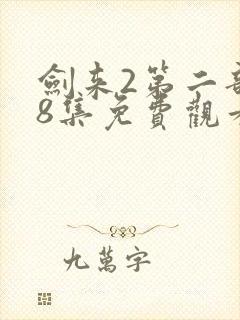 劍来2第二部
8集免費觀看
九萬字